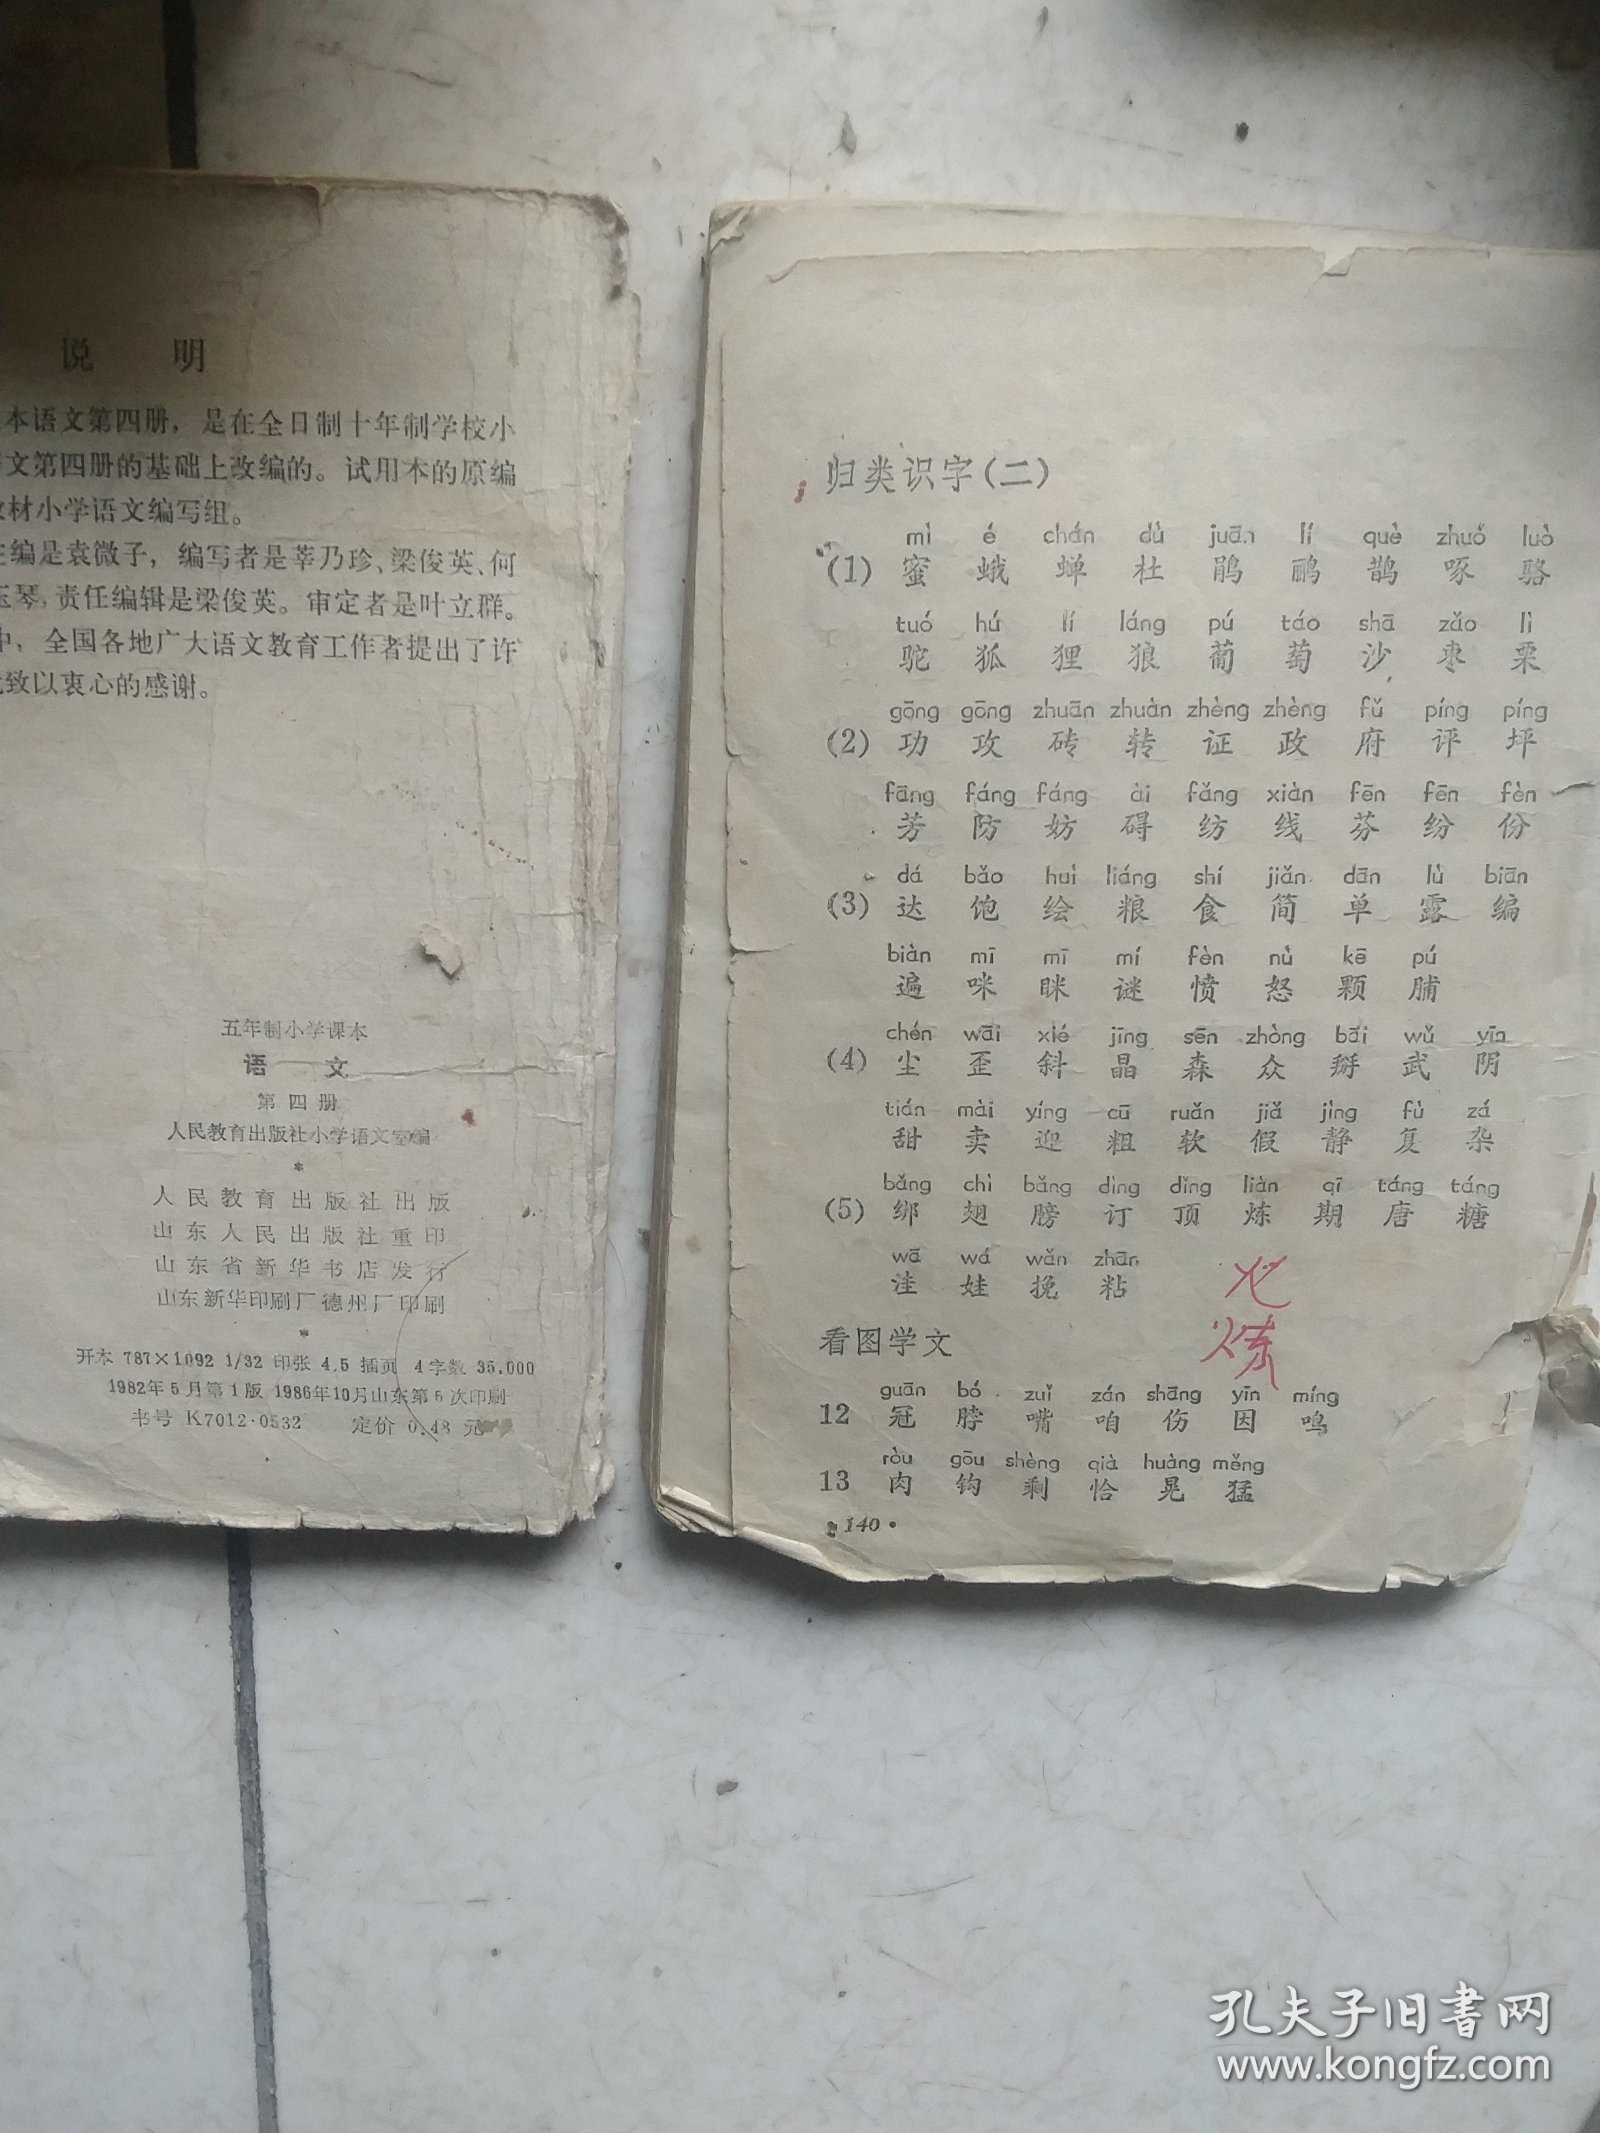 说 明
本语文第四册，是在全日制十年制学校小
文第四册的基础上改编的。试用本的原编
材小学语文编写组。
编是袁微子，编写者是莘乃珍、梁俊英、何
玉琴，责任编辑是梁俊英。审定者是叶立群。
中，全国各地广大语文教育工作者提出了许
致以衷心的感谢。
五年制小学课本
语 文
第四册
人民教育出版社小学语文室编
*
人民教育出版社出版
山东人民出版社重印
山东省新华书店发行
山东新华印刷厂德州厂印刷
*
开本 787×1092 1/32 印张 4.5 插页 4 字数 35,000
1982年5月第1版 1986年10月山东第5次印刷
书号 K7012·0532 定价 0.48 元
归类识字(二)
mì é chán dù juān lí què zhuó luò
(1) 蜜 蛾 蝉 杜 鹃 鹂 鹊 啄 骆
tuó hú lí láng pú táo shā zǎo lì
驼 狐 狸 狼 葡 萄 沙 枣 栗
gōng gōng zhuān zhuàn zhèng zhèng fǔ píng píng
(2) 功 攻 砖 转 证 政 府 评 坪
fāng fáng fáng ài fǎng xiàn fēn fēn fèn
芳 防 妨 碍 纺 线 芬 纷 份
dá bǎo huì liáng shí jiǎn dān lù biān
(3) 达 饱 绘 粮 食 简 单 露 编
biàn mī mī mí fèn nù kē pú
遍 咪 眯 谜 愤 怒 颗 脯
chén wāi xié jīng sēn zhòng bāi wǔ yīn
(4) 尘 歪 斜 晶 森 众 掰 武 阴
tián mài yíng cū ruǎn jiǎ jìng fù zá
甜 卖 迎 粗 软 假 静 复 杂
bǎng chì bǎng dìng dǐng liàn qī táng táng
(5) 绑 翅 膀 订 顶 炼 期 唐 糖
wā wá wǎn zhān
洼 娃 挽 粘
炼
看图学文
guān bó zuǐ zán shāng yīn míng
12 冠 脖 嘴 咱 伤 因 鸣
ròu gōu shèng qià huàng měng
13 肉 钩 剩 恰 晃 猛
·140·
孔夫子旧书网
www.kongfz.com